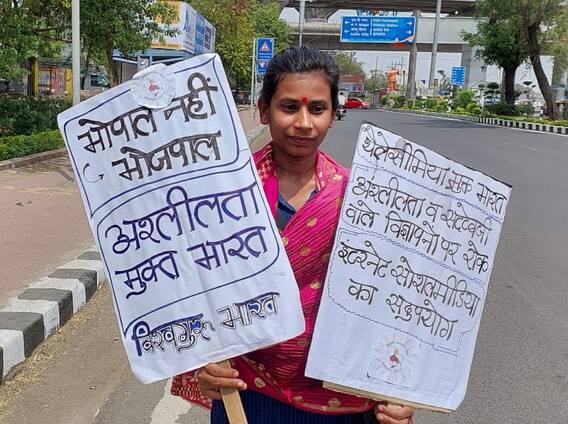 भोपाल नहीं
भोजपाल
अश्लीलता
मुक्त भारत
विश्वगुरू भारत
थैलेसीमिया मुक्त भारत
अश्लीलता व सट्टेबाजी
वाले विज्ञापनों पर रोक
इंटरनेट सोशल मीडिया
का सदुपयोग